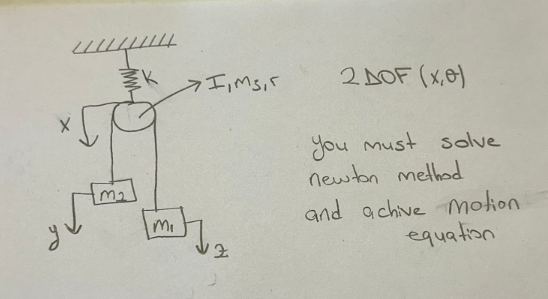 K
I, m3, r
2 DOF (x, θ)
x
you must solve
newton method
m2
and achive motion
m1
equation
y
z